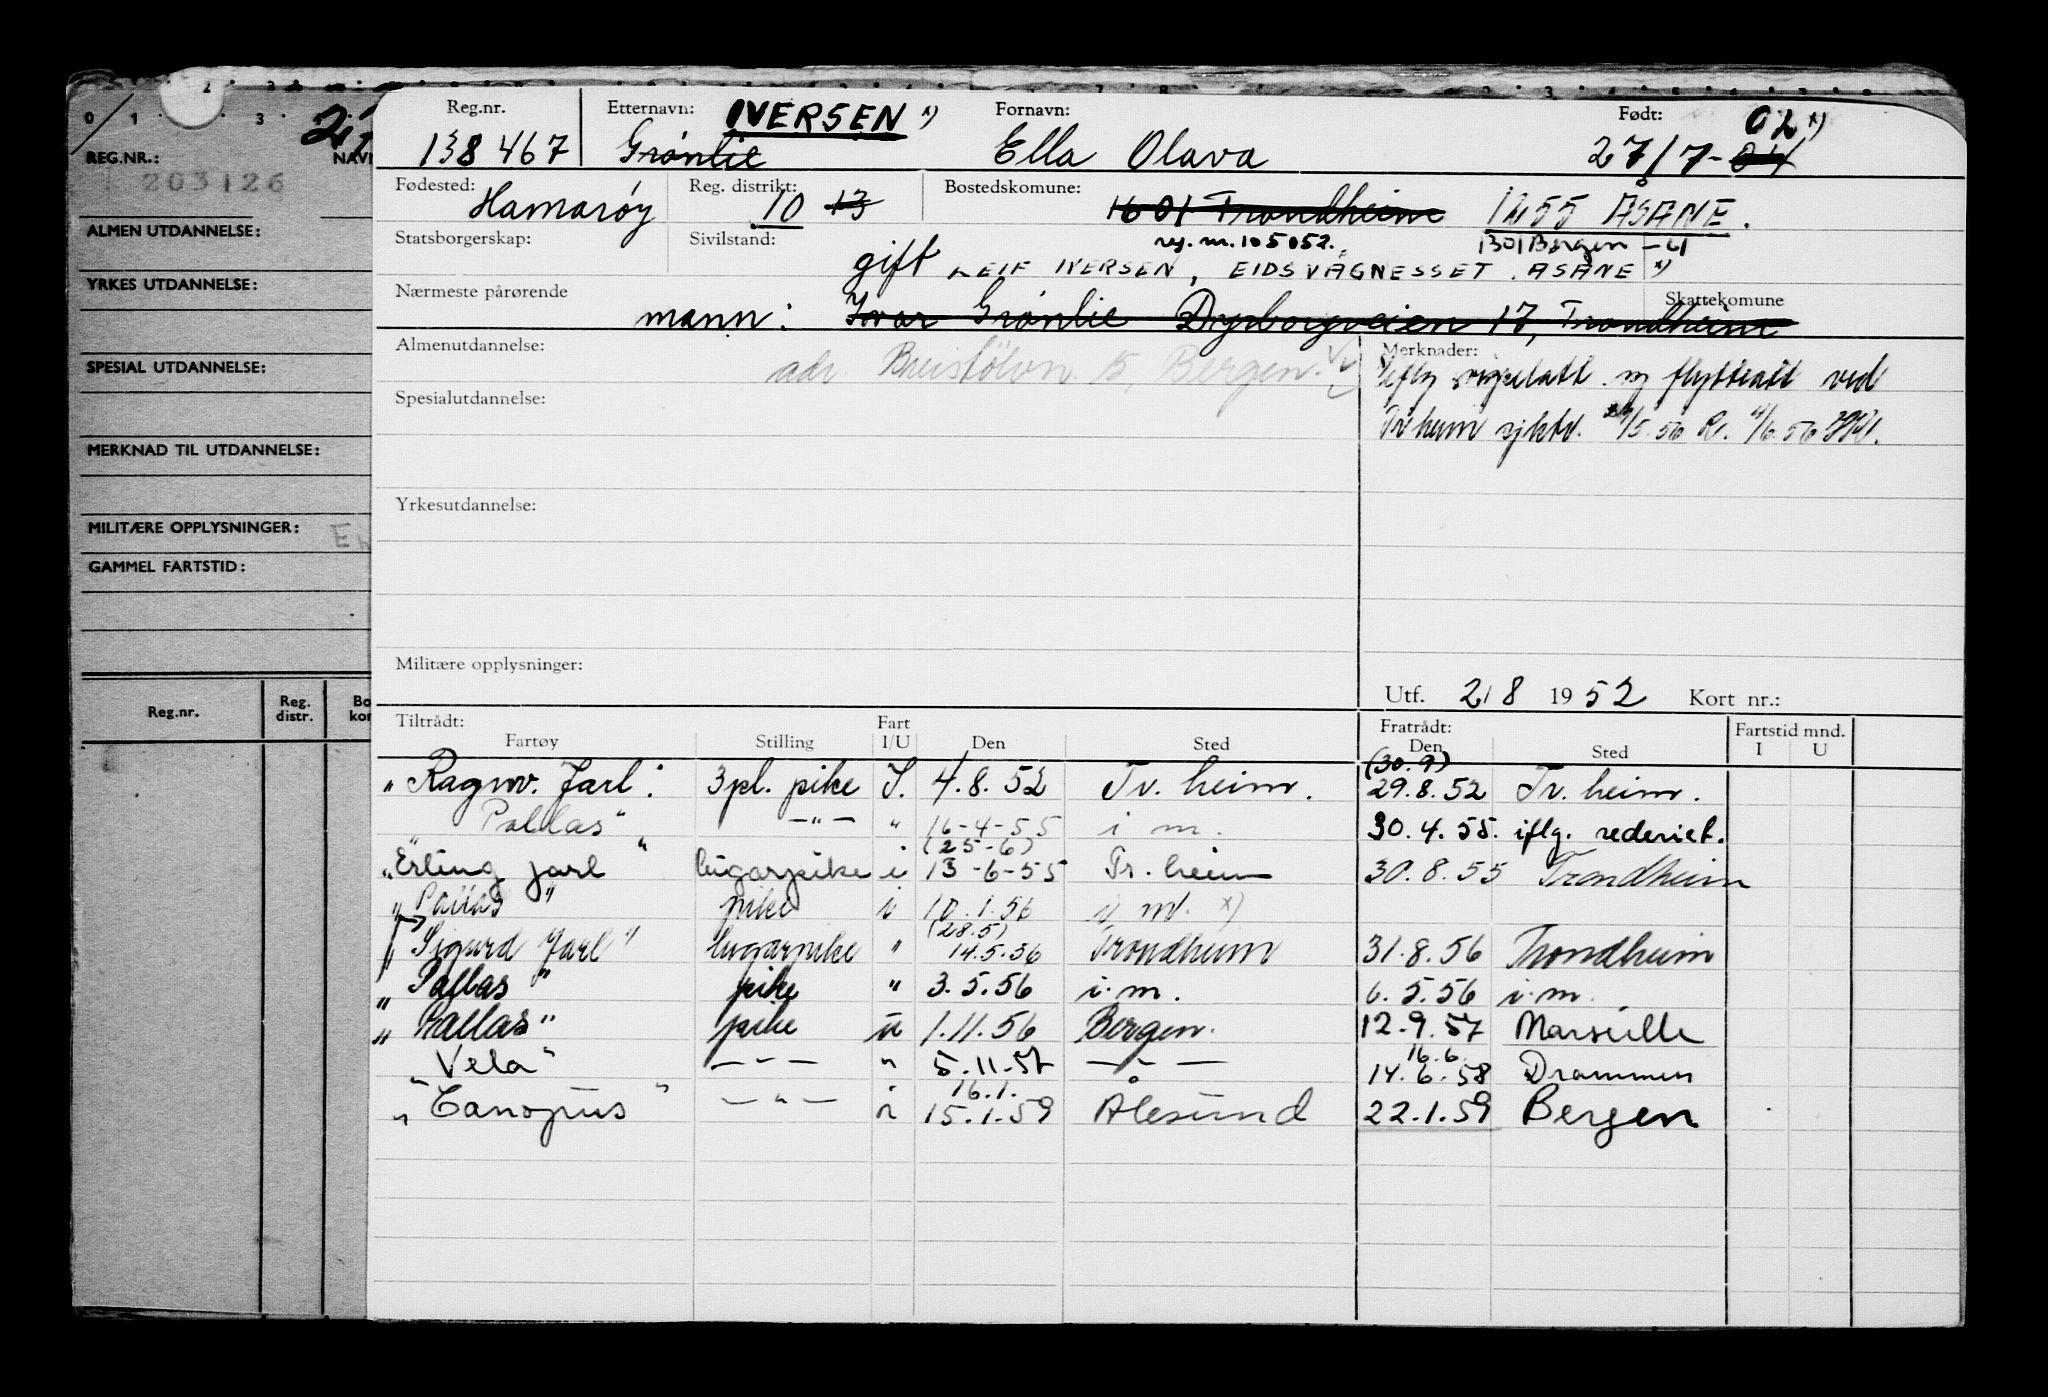 0 1 2 3
REG.NR.: NAV
203126
ALMEN UTDANNELSE:
YRKES UTDANNELSE:
SPESIAL UTDANNELSE:
MERKNAD TIL UTDANNELSE:
MILITÆRE OPPLYSNINGER:
GAMMEL FARTSTID:
Reg.nr. Reg. distr. Bo kor
Reg.nr. Etternavn: IVERSEN x) Fornavn: Født: 02 x)
138 467 Grønlie Ella Olava 27/7-04
Fødested: Reg. distrikt: Bostedskomune:
Hamarøy 10 13 1601 Trondheim 1255 ÅSANE.
Statsborgerskap: Sivilstand: reg. nr. 105052. 1301 Bergen
gift LEIF IVERSEN, EIDSVÅGNESSET, ÅSANE x)
Nærmeste pårørende Skattekomune
mann: Ivar Grønlie Dyrborgveien 17, Trondheim
Almenutdannelse: Merknader:
adr. Breistølvn. 15, Bergen.
Iflg. flyttet ved
Spesialutdannelse:
Tr.heim 5.56 4/6.56
Yrkesutdannelse:
Militære opplysninger:
Utf. 2/8 1952 Kort nr.:
Tiltrådt: Fart Fratrådt: Fartstid mnd.
Fartøy Stilling I/U Den Sted Den Sted I U
(30.9)
"Ragnv. Jarl" 3pl. pike I. 4.8.52 Tr. heim. 29.8.52 Tr. heim.
"Pallas" —"— " 16-4-55 i m. 30.4.55. iflg. rederiet.
(25-6)
"Erling Jarl" lugarpike i 13-6-55 Tr. heim 30.8.55 Trondheim
"Pallas" pike i 10.1.56 i m. x)
(28.5)
"Sigurd Jarl" lugarpike " 14.5.56 Trondheim 31.8.56 Trondheim
"Pallas" pike " 3.5.56 i.m. 6.5.56 i.m.
"Pallas" pike u 1.11.56 Bergen. 12.9.57 Marseille
16.6.
"Vela" —"— " 5.11.57 —"— 14.6.58 Drammen
16.1.
"Canopus" —"— i 15.1.59 Ålesund 22.1.59 Bergen